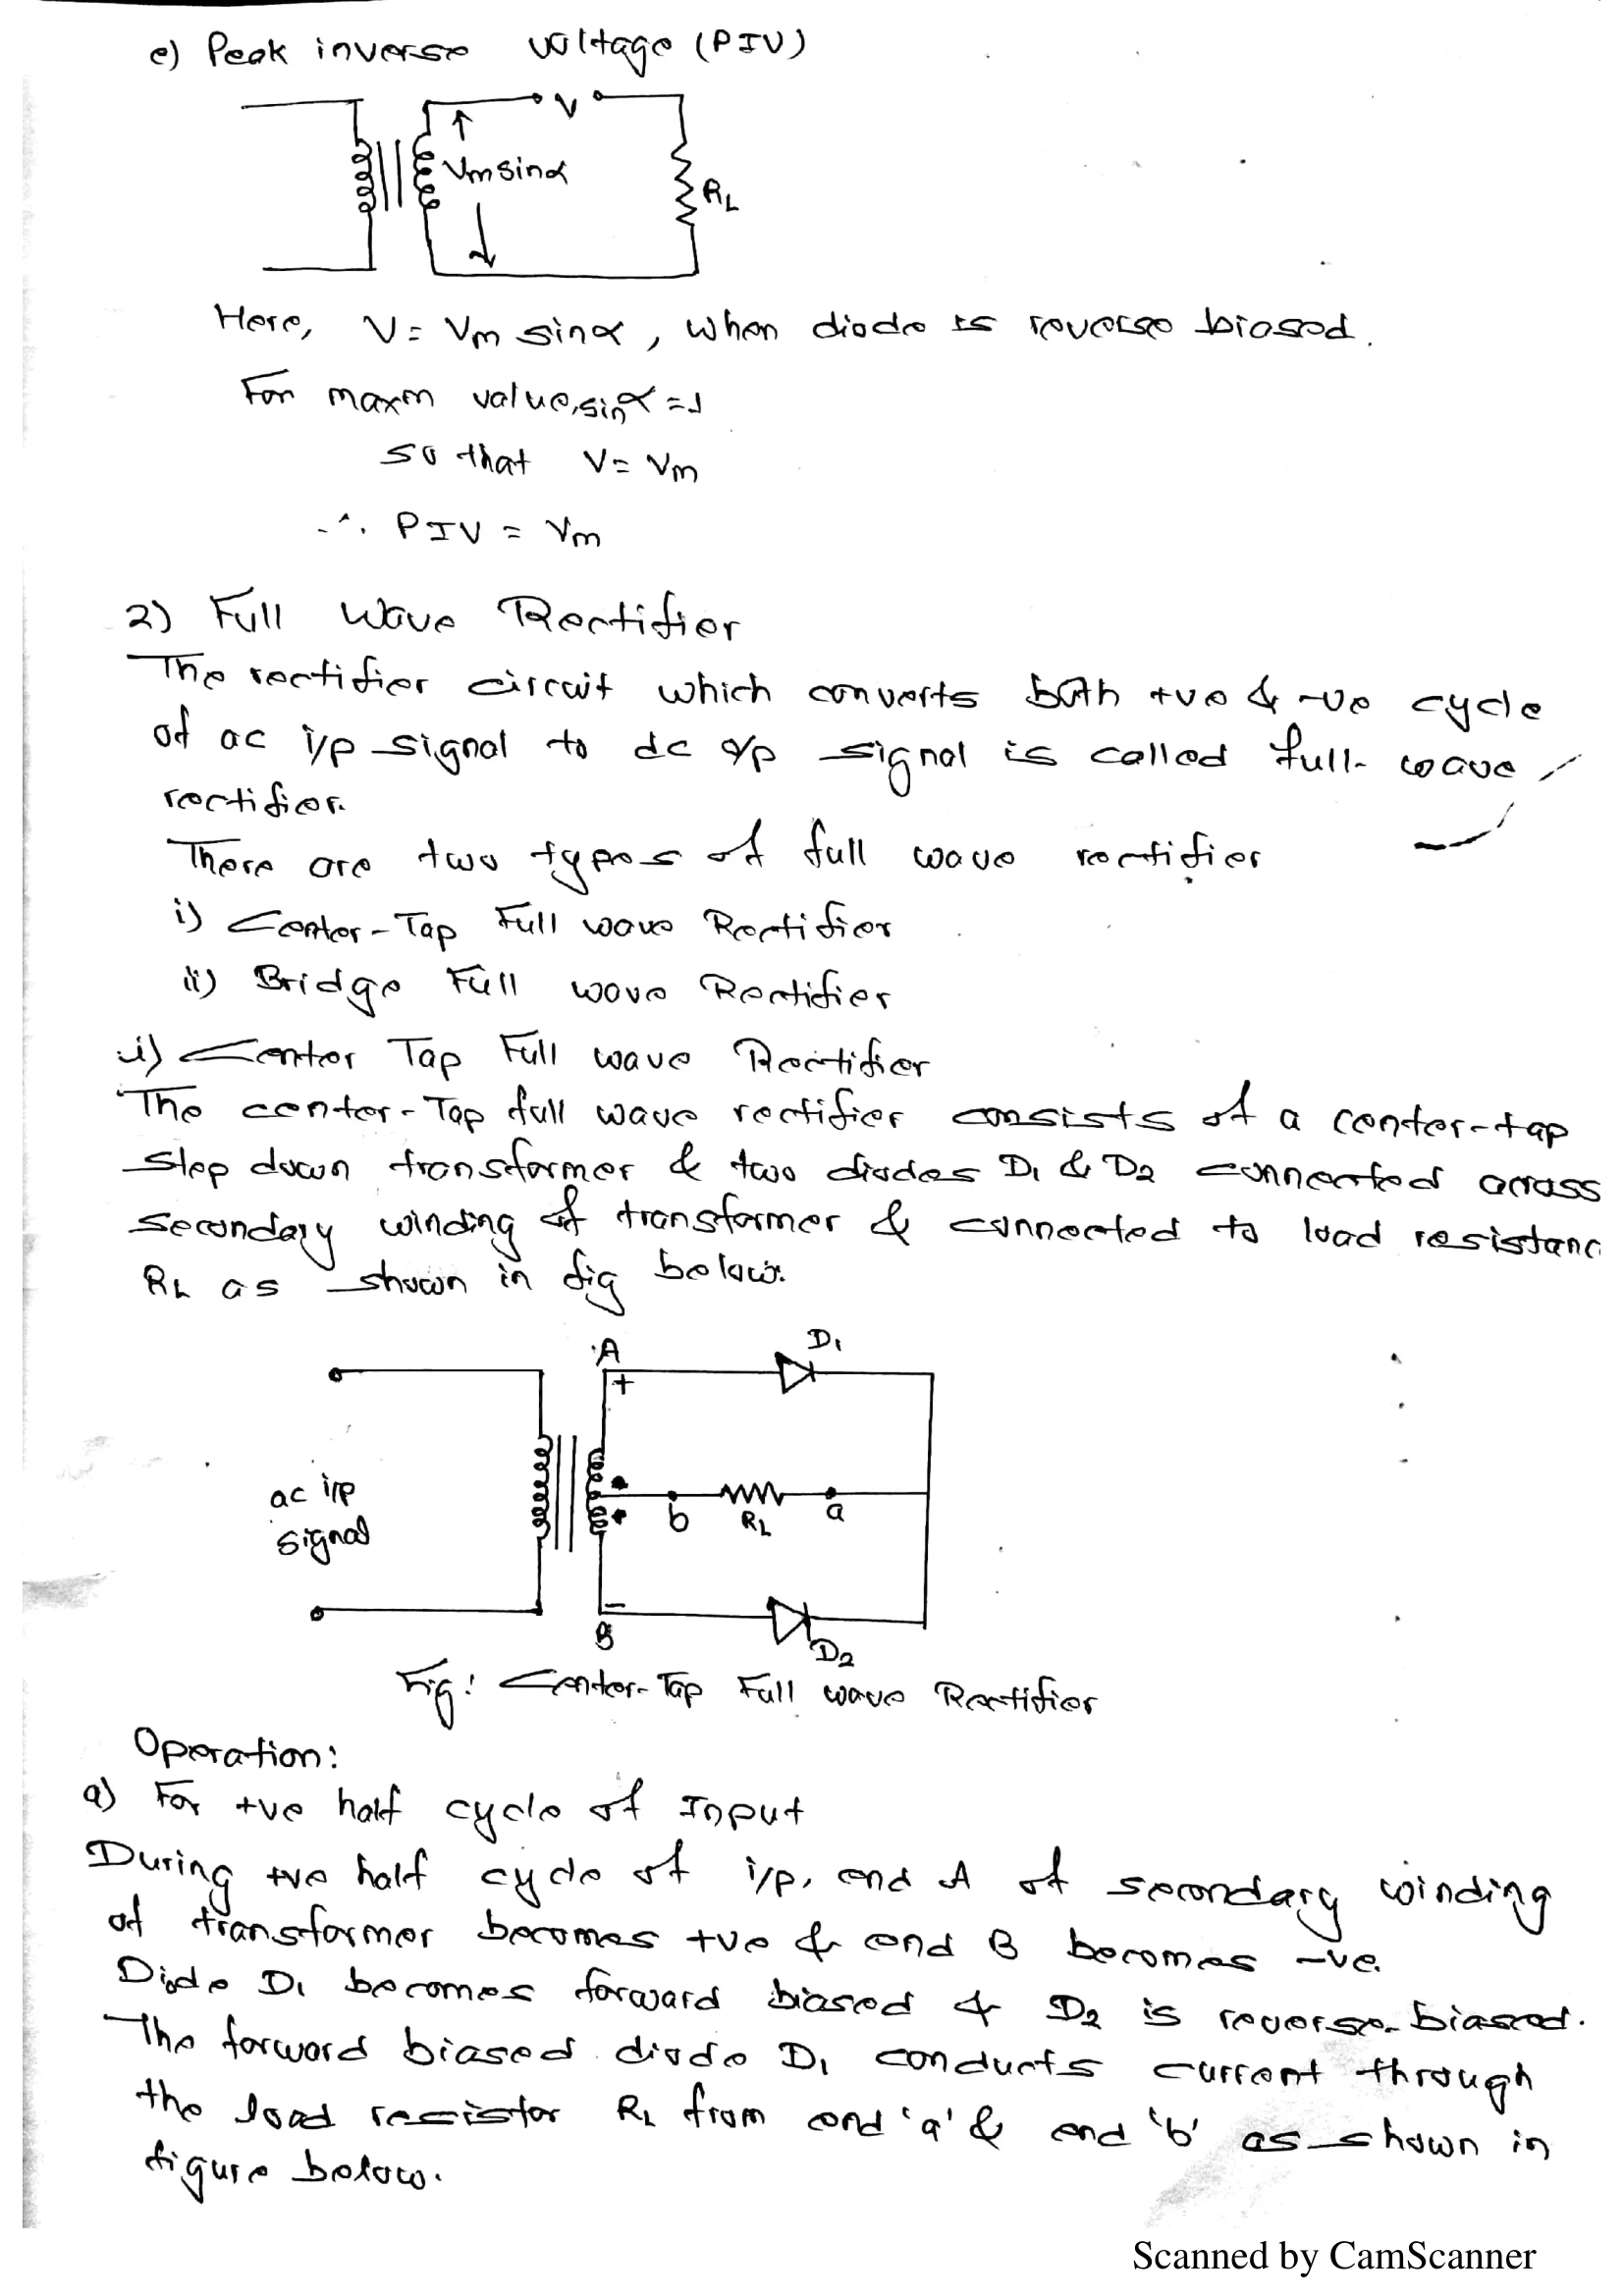 e) Peak inverse voltage (PIV)
V
Vm sinα
RL
Here, V = Vm sinα, when diode is reverse biased.
For maxm value, sinα = 1
so that V = Vm
∴ PIV = Vm
2) Full Wave Rectifier
The rectifier circuit which converts both +ve & -ve cycle
of ac i/p signal to dc o/p signal is called full-wave
rectifier.
There are two types of full wave rectifier
i) Center-Tap Full wave Rectifier
ii) Bridge Full wave Rectifier
i) Center Tap Full wave Rectifier
The center-Tap full wave rectifier consists of a center-tap
step down transformer & two diodes D1 & D2 connected across
secondary winding of transformer & connected to load resistanc
RL as shown in fig below:
A
D1
+
ac i/p
signal
b
RL
a
-
B
D2
Fig: Center-Tap Full wave Rectifier
Operation:
a) For +ve half cycle of Input
During +ve half cycle of i/p, end A of secondary winding
of transformer becomes +ve & end B becomes -ve.
Diode D1 becomes forward biased & D2 is reverse-biased.
The forward biased diode D1 conducts current through
the load resistor RL from end 'a' & end 'b' as shown in
figure below.
Scanned by CamScanner